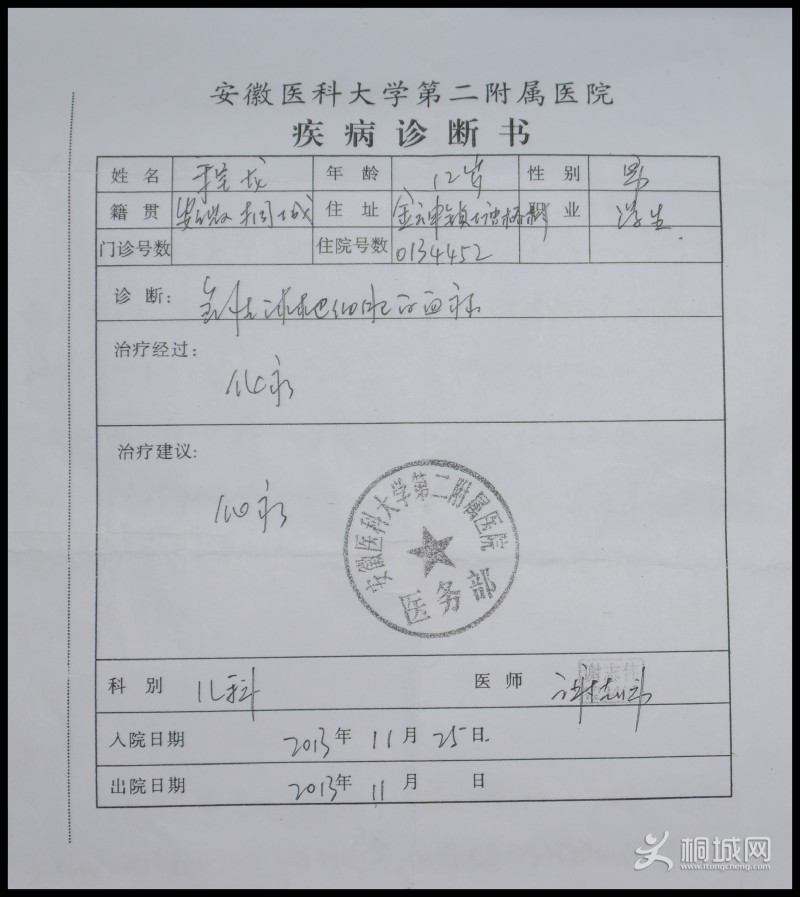 安徽医科大学第二附属医院
疾病诊断书
姓名 程成 年龄 12岁 性别 男
籍贯 安徽桐城 住址 金神镇 职业 学生
门诊号数 住院号数 0134452
诊断: 急性淋巴细胞白血病
治疗经过:
化疗
治疗建议:
化疗
安徽医科大学第二附属医院
医务部
科别 儿科 医师 谢志伟
谢志伟
入院日期 2013年11月25日
出院日期 2013年11月 日
桐城网
www.itongcheng.com